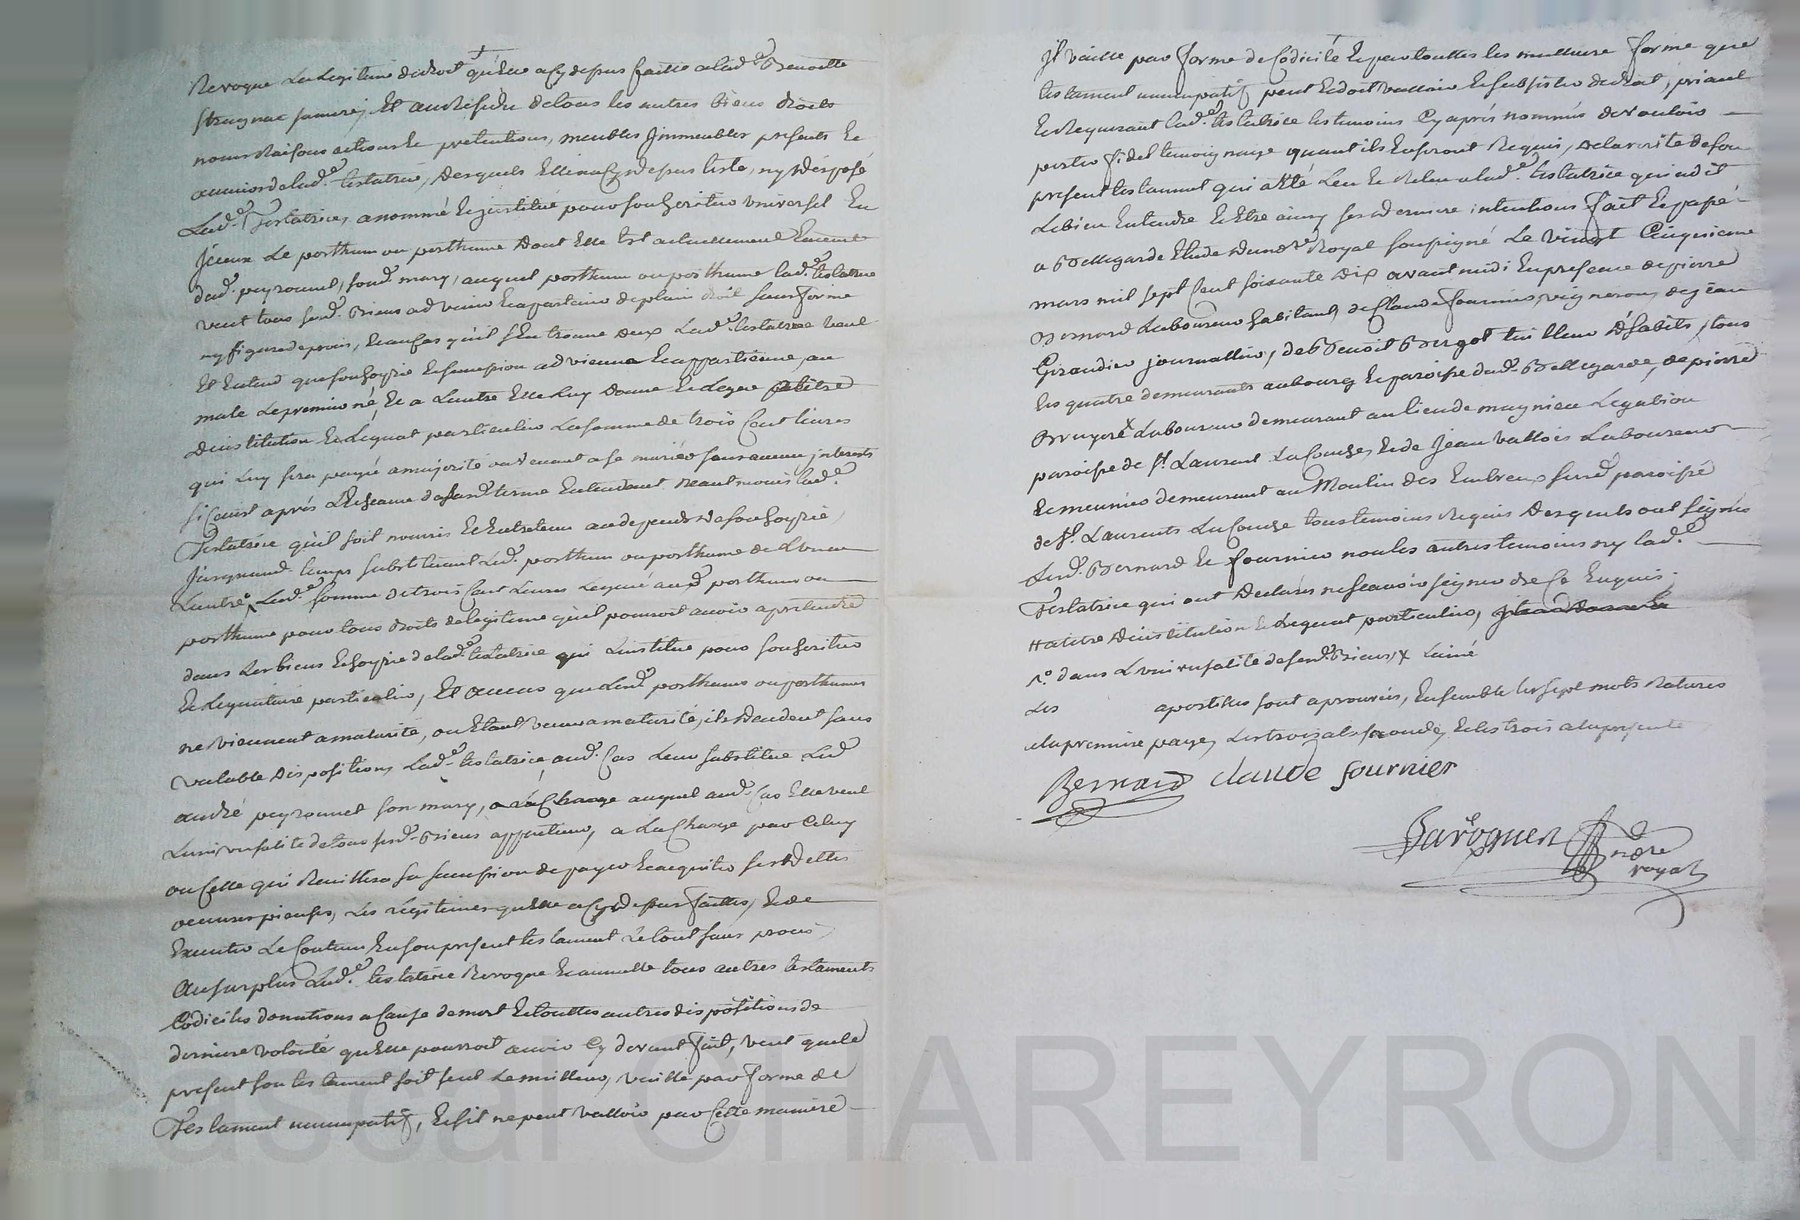 Revoque La Legitime de droit qu'elle a cy depus faitte a lad.e Benoitte
sa mere, Et au Residu de tous les autres biens droits
noms Raisons actions et pretentions, meubles Jmmeubles presents Et
avenirs de lad.e testatrice, desquels Elle n'a cy depus testé, ny disposé
Lad.e Testatrice, a nommé Et Jnstitué pour son heritier universel Ee
Jceux Le posthum ou posthume dont Elle Est actuellement Enceinte
dud. peyronnet, sond. mary, auquel posthum ou posthume lad.e testatrice
veut tous sesd. Biens advenir Et apartenir de plein droit sans forme
ny figure de procès, Et au cas qu'il s'en trouve deux Lad.e testatrice veut
Et Entend que son hoyrie Et succession advienne Et appartienne, au
male Le premier né, Et a Lautre Elle Luy donne Et Legue
d'institution Et Legat particulier La somme de trois Cent livres
qui Luy sera payée a majorité ou venant a se marier sans aucun interests
si Court après L'Echeance dud. terme Entendant neanmoins lad.e
Testatrice qu'il soit nourris Et Entretenu aux depends de son hoyrie,
Jusqu'aud. temps substituant Lud. posthum ou posthume de L'un a
Lautre, Lad.e somme de trois Cent Livres Leguée aud. posthum ou
posthume pour tous droits de legitime qu'il pourroit avoir a pretendre
dans Les biens Et hoyrie de lad.e testatrice qui L'institue pour son heritier
Et Legataire particulier, Et au cas que Lesd. posthumes ou posthumes
ne viennent a maturité, ou Etant venus a maturité, ils decedent sans
valable dispositions, Lad.e testatrice aud. Cas Leur substitue Lud.
andré peyronnet son mary, a la Charge auquel aud. Cas Elle veut
L'universalité de tous sesd. Biens appartenir, a La Charge par Celuy
ou Celle qui Recuillera sa succession de payer Et acquiter ses dettes
oeuvres pieuses, Les Legitimes qu'elle a Cy depus faittes, Et de
Executer Le Contenu En son present testament Le tout sans procès
Au surplus Lad.e testatrice Revoque Et annulle tous autres testaments
Codiciles donations a Cause de mort Et touttes autres dispositions de
derniere volonté qu'elle pourroit avoir Cy devant fait, veut que le
present son testament soit seul Le meilleur, vaille par forme de
Testament nuncupatif, Et s'il ne peut valloir par Cette maniere
Jl vaille par forme de Codicile Et par touttes les meilleure forme que
testament nuncupatif peut Et doit valloir Et subsister de droit, priant
Et Requerant lad.e testatrice les temoins Cy après nommés de vouloir
porter fidel temoignage quant ils En seront Requis, de la verité de son
present testament qui a Eté Leu Et Releu a lad.e testatrice qui a dit
Le bien Entendre Et Etre ainsy ses derniere intentions fait Et passé
a Bellegarde Etude du no.re Royal soussigné Le vingt Cinquieme
mars mil sept Cent soixante dix avant midi En presence de pierre
Bernard Laboureur habitant, de Claude fournier, vigneron, de jean
Girandier journallier, de Benoit Bergot tailleur d'habits, tous
les quatre demeurants au bourg Et paroisse dud. Bellegarde, de pierre
Bruyere Laboureur demeurant au lieu de magnieu Le gabion
paroisse de St. Laurent La Conche, Et de Jean vallois Laboureur
Et meunier demeurant au Moulin des Embreux sur lad. paroisse
de St. Laurents La Conche tous temoins Requis desquels ont signés
Lesd. Bernard Et fournier non les autres temoins ny lad.e
Testatrice qui ont declarés ne scavoir signer de Ce Enquis.
# a titre d'institution Et Legat particulier,
dans L'universalité de sesd. Biens, x Lainé
Les apostiles sont aprouvées, Ensemble les sept mots Raturés
a la premiere page, Les trois a la seconde, Et les trois a la presente
Bernard Claude fournier
Baroguen
no.re
royal
Pascal CHAREYRON